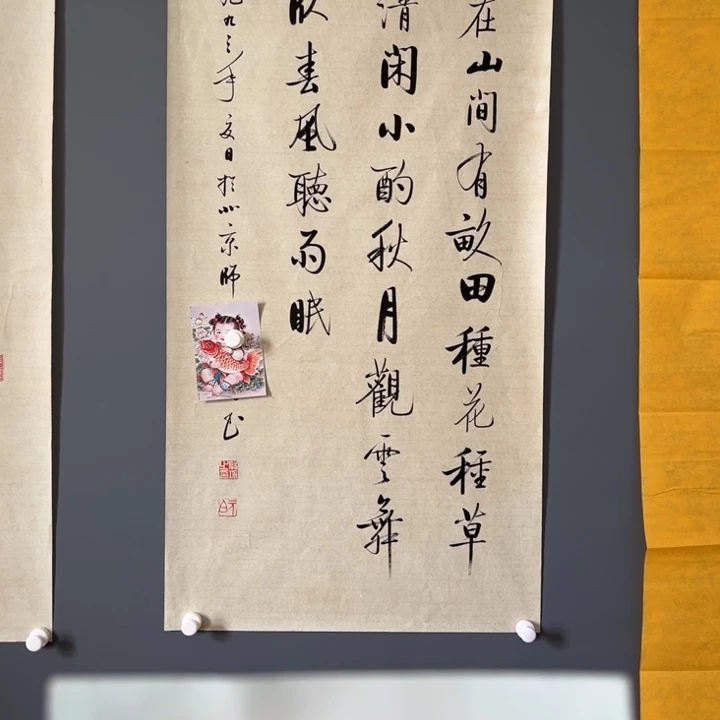 在山間有畝田種花種草
清閑小酌秋月觀雲舞
春風聽雨眠
九三年夏日於北京師